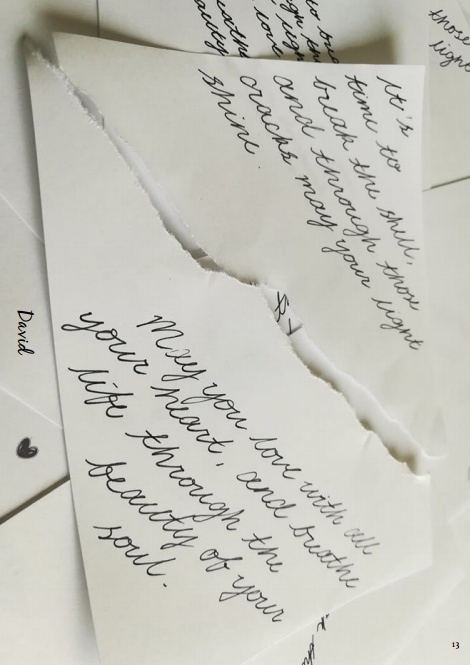 It's
time to
break the shell,
and through those
cracks may your light
shine.
May you love with all
your heart, and breathe
life through the
beauty of your
soul.
those
light
David
13